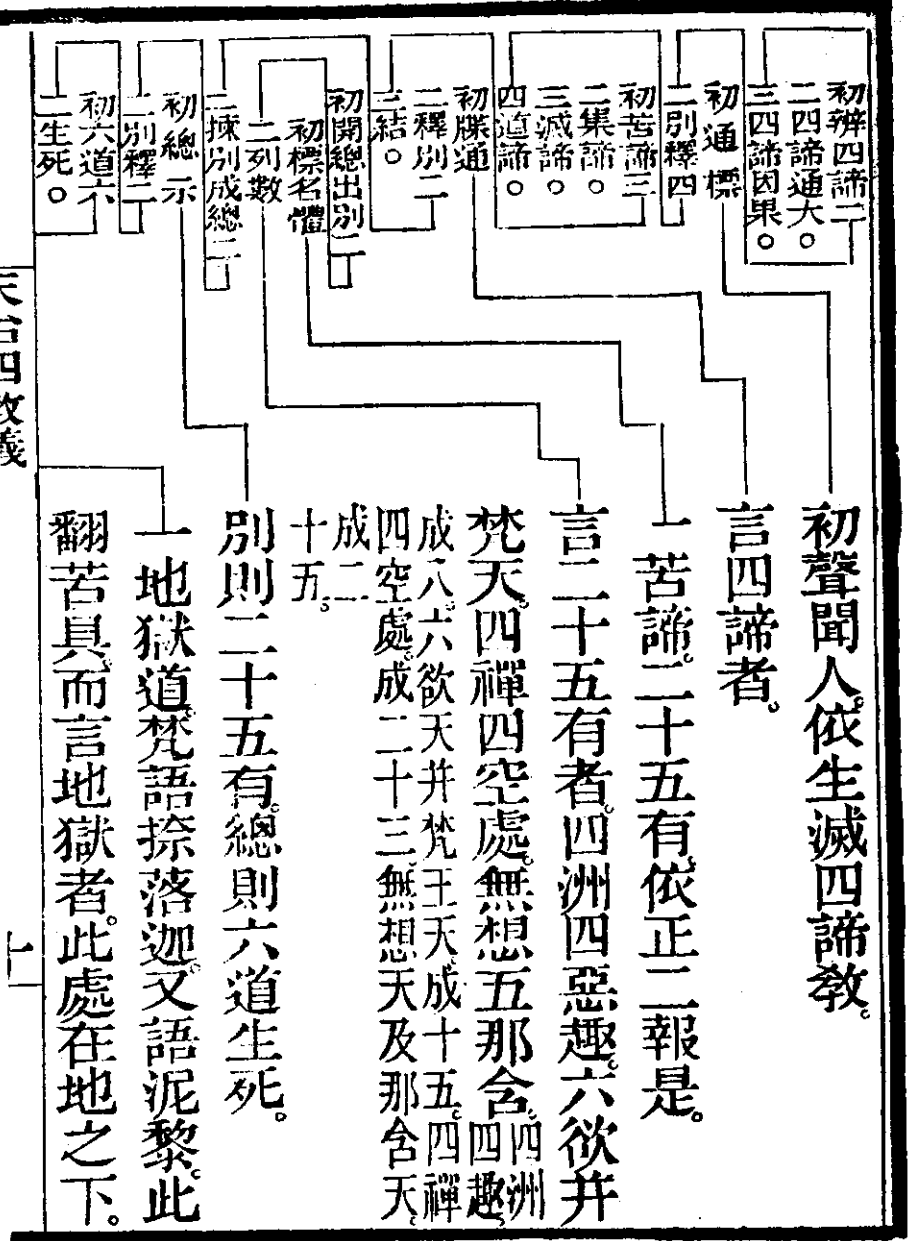 初辨四諦二
二四諦通大○
三四諦因果○
初通標
二別釋四
初苦諦三
二集諦○
三滅諦○
四道諦○
初牒通
二釋別二
三結○
初開總出別二
初標名體
二列數
二揀別成總二
初總示
二別釋二
初六道六
二生死○
初聲聞人。依生滅四諦教。
言四諦者。
一苦諦。二十五有。依正二報是。
言二十五有者。四洲四惡趣。六欲并
梵天。四禪四空處。無想五那含。四洲
四趣
成八。六欲天并梵王天。成十五。四禪
四空處。成二十三。無想天及那含天。
成二
十五。
別則二十五有。總則六道生死。
一地獄道。梵語捺落迦。又語泥黎。此
翻苦具。而言地獄者。此處在地之下。
天台四教義
十